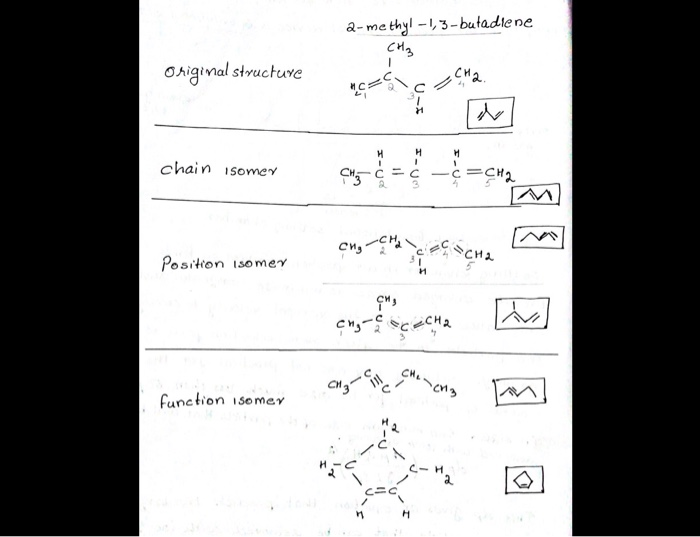 2-methyl-1,3-butadiene
Original structure
CH3
H2C=C C CH2
1 2 3 4
H
chain isomer
H H H
CH3-C=C-C=CH2
1 2 3 4 5
Position isomer
CH3-CH2 C=C=CH2
1 2 3 4 5
H
CH3
CH3-C=C=CH2
1 2 3 4
function isomer
CH3-C≡C-CH2-CH3
H2
C
H2-C C-H2
C=C
H H